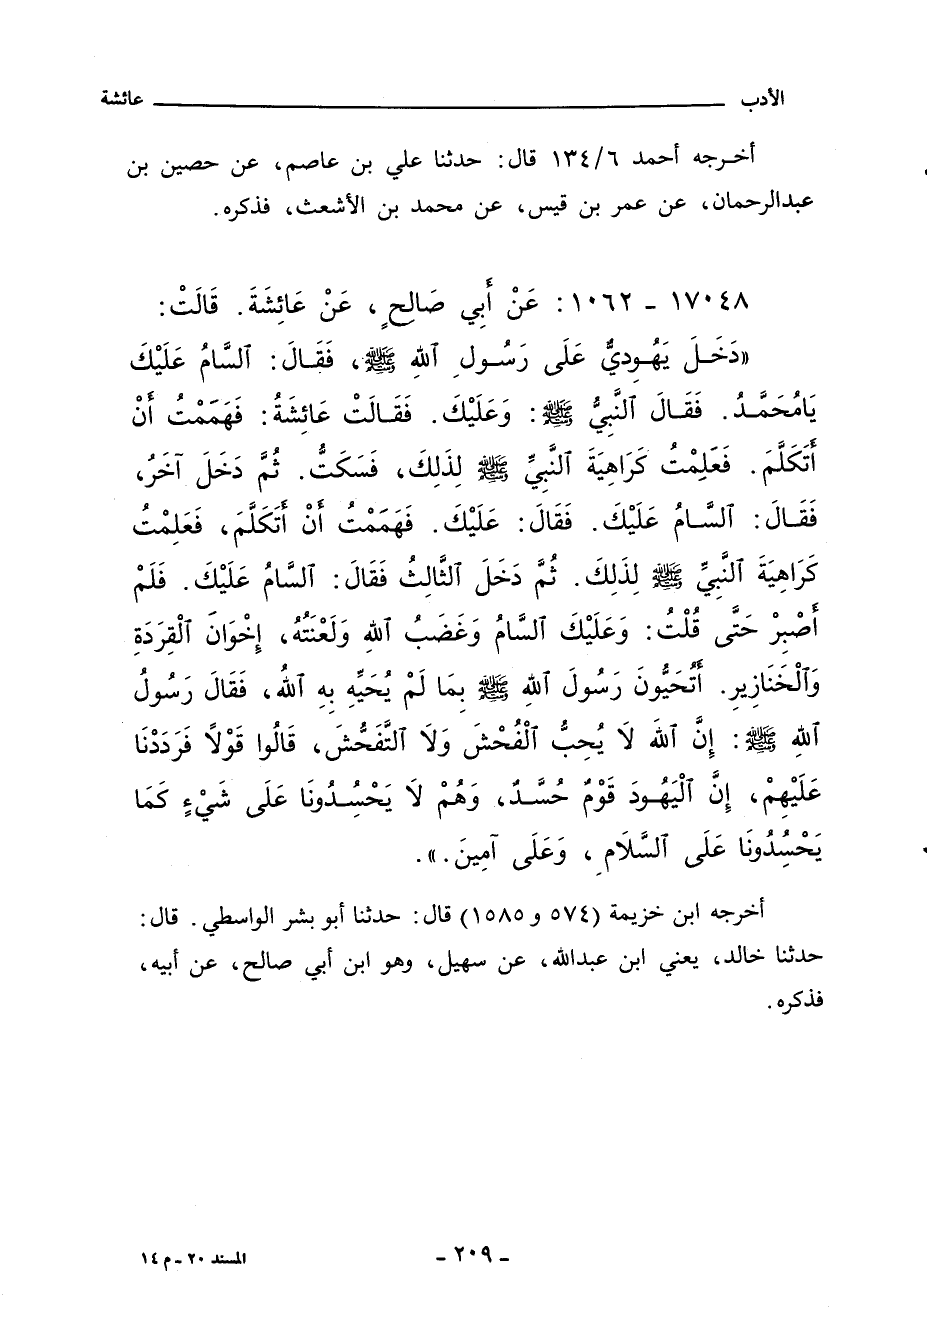 الأدب ــــــــــــــــــــ عائشة
أخرجه أحمد ١٣٤/٦ قال: حدثنا علي بن عاصم، عن حصين بن
عبدالرحمان، عن عمر بن قيس، عن محمد بن الأشعث، فذكره.
١٧٠٤٨ - ١٠٦٢: عَنْ أَبِي صَالِحٍ، عَنْ عَائِشَةَ. قَالَتْ:
«دَخَلَ يَهُودِيٌّ عَلَى رَسُولِ ٱللهِ ﷺ، فَقَالَ: ٱلسَّامُ عَلَيْكَ
يَامُحَمَّدُ. فَقَالَ ٱلنَّبِيُّ ﷺ: وَعَلَيْكَ. فَقَالَتْ عَائِشَةُ: فَهَمَمْتُ أَنْ
أَتَكَلَّمَ. فَعَلِمْتُ كَرَاهِيَةَ ٱلنَّبِيِّ ﷺ لِذَلِكَ، فَسَكَتُّ. ثُمَّ دَخَلَ آخَرُ،
فَقَالَ: ٱلسَّامُ عَلَيْكَ. فَقَالَ: عَلَيْكَ. فَهَمَمْتُ أَنْ أَتَكَلَّمَ، فَعَلِمْتُ
كَرَاهِيَةَ ٱلنَّبِيِّ ﷺ لِذَلِكَ. ثُمَّ دَخَلَ ٱلثَّالِثُ فَقَالَ: ٱلسَّامُ عَلَيْكَ. فَلَمْ
أَصْبِرْ حَتَّى قُلْتُ: وَعَلَيْكَ ٱلسَّامُ وَغَضَبُ ٱللهِ وَلَعْنَتُهُ، إِخْوَانَ ٱلْقِرَدَةِ
وَٱلْخَنَازِيرِ. أَتُحَيُّونَ رَسُولَ ٱللهِ ﷺ بِمَا لَمْ يُحَيِّهِ بِهِ ٱللهُ، فَقَالَ رَسُولُ
ٱللهِ ﷺ: إِنَّ ٱللهَ لَا يُحِبُّ ٱلْفُحْشَ وَلَا ٱلتَّفَحُّشَ، قَالُوا قَوْلًا فَرَدَدْنَا
عَلَيْهِمْ، إِنَّ ٱلْيَهُودَ قَوْمٌ حُسَّدٌ، وَهُمْ لَا يَحْسُدُونَا عَلَى شَيْءٍ كَمَا
يَحْسُدُونَا عَلَى ٱلسَّلَامِ، وَعَلَى آمِينَ.».
أخرجه ابن خزيمة (٥٧٤ و ١٥٨٥) قال: حدثنا أبو بشر الواسطي. قال:
حدثنا خالد، يعني ابن عبدالله، عن سهيل، وهو ابن أبي صالح، عن أبيه،
فذكره.
- ٢٠٩ -
المسند ٢٠ - م ١٤